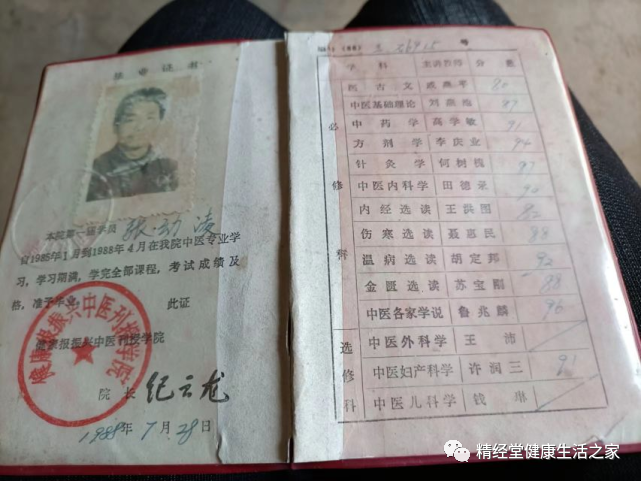 毕业证书
本院第一届学员 张
自1985年1月到1988年4月在我院中医专业学
习，学习期满，学完全部课程，考试成绩及
格，准予毕业。
此证
健康报振兴中医刊授学院
健康报振兴中医刊授学院
院 长 纪云龙
1988年7月28日
号
学 科 主讲教师 分 数
必修科
医古文
中医基础理论 87
中药学 高学敏 91
方剂学 李庆业 94
针灸学 何树槐
中医内科学 田德录 90
内经选读 王洪图 82
伤寒选读 聂惠民 88
温病选读 胡定邦 92
金匮选读 苏宝刚 88
中医各家学说 鲁兆麟 96
选修科
中医外科学 王沛
中医妇产科学 许润三
中医儿科学
精经堂健康生活之家